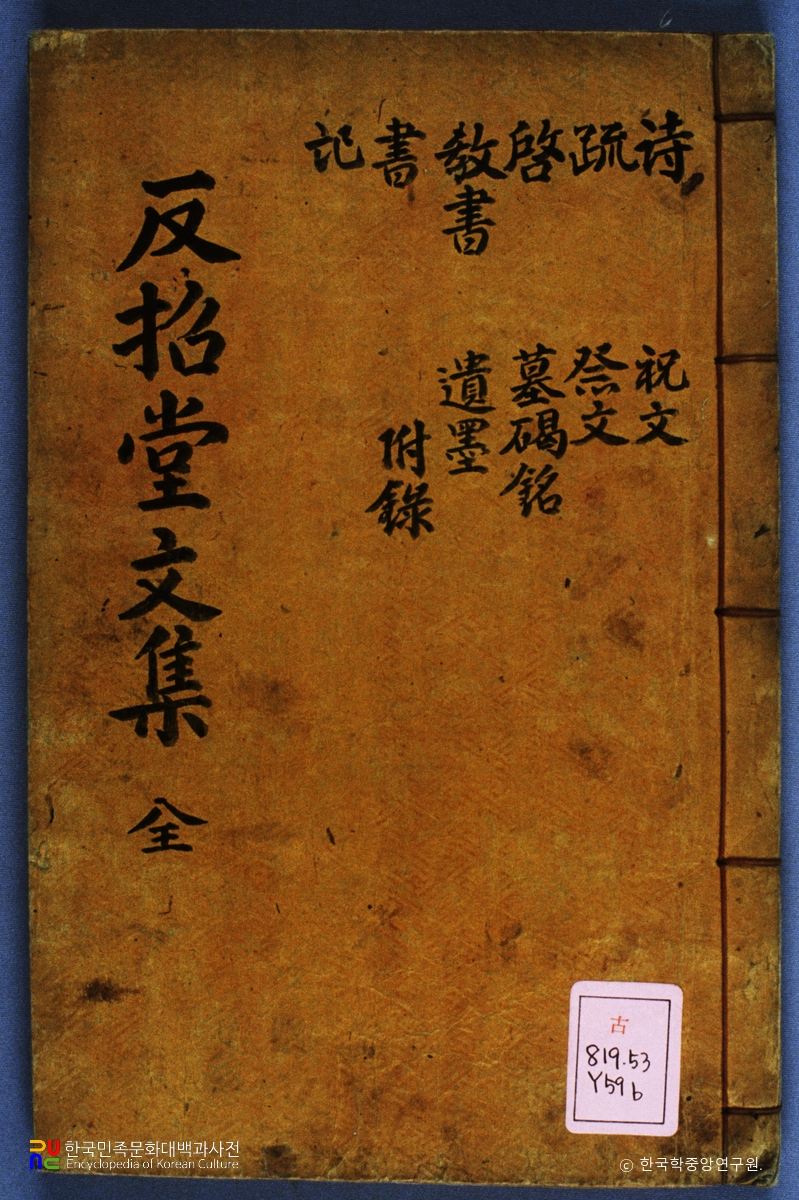 詩
疏
啓
教書
書
記
祝文
祭文
墓碣銘
遺墨
附錄
反招堂文集 全
古
819.53
Y59b
한국민족문화대백과사전
Encyclopedia of Korean Culture
© 한국학중앙연구원.